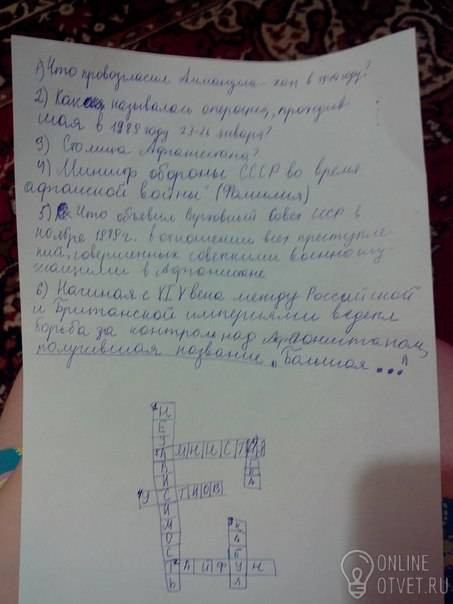 1) Что провозгласил Аманулла-хан в 1919 году?
2) Как называлась операция, прошедшая
в 1989 году 23-26 января?
3) Столица Афганистана?
4) Министр обороны СССР во время
афганской войны (Фамилия)
5) Что объявил Верховный Совет СССР в
ноябре 1989 г. в отношении всех преступле-
ний, совершенных советскими военнослу-
жащими в Афганистане
6) Начиная с XIX века между Российской
и Британской империями велась
борьба за контроль над Афганистаном,
получившая название "Большая ..."
НЕЗАВИСИМОСТЬ
АМНИСТИЯ
ИГРА
УСТИНОВ
КАБУЛ
ТАЙФУН
ONLINE
OTVET.RU